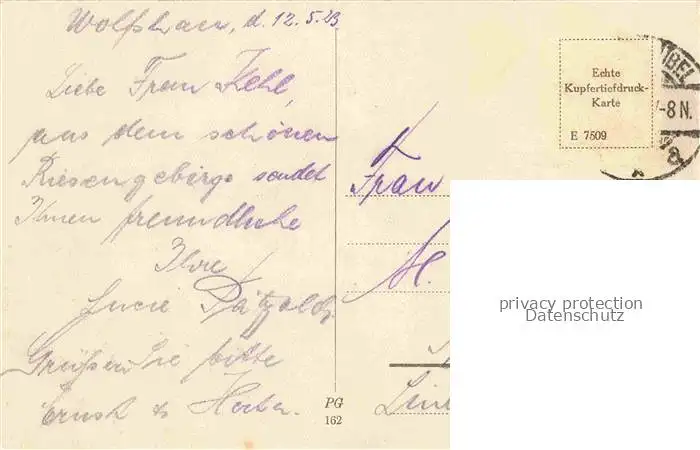 Wolfshau, d. 12.5.23
Liebe Frau Kehl,
aus dem schönen
Riesengebirge sendet
Ihnen freundliche
Ihre
Lucie Pätzold.
Grüßen Sie bitte
Ernst &
Frau
M.
PG
162
Echte
Kupfertiefdruck-
Karte
E 7509
-8 N.
privacy protection
Datenschutz